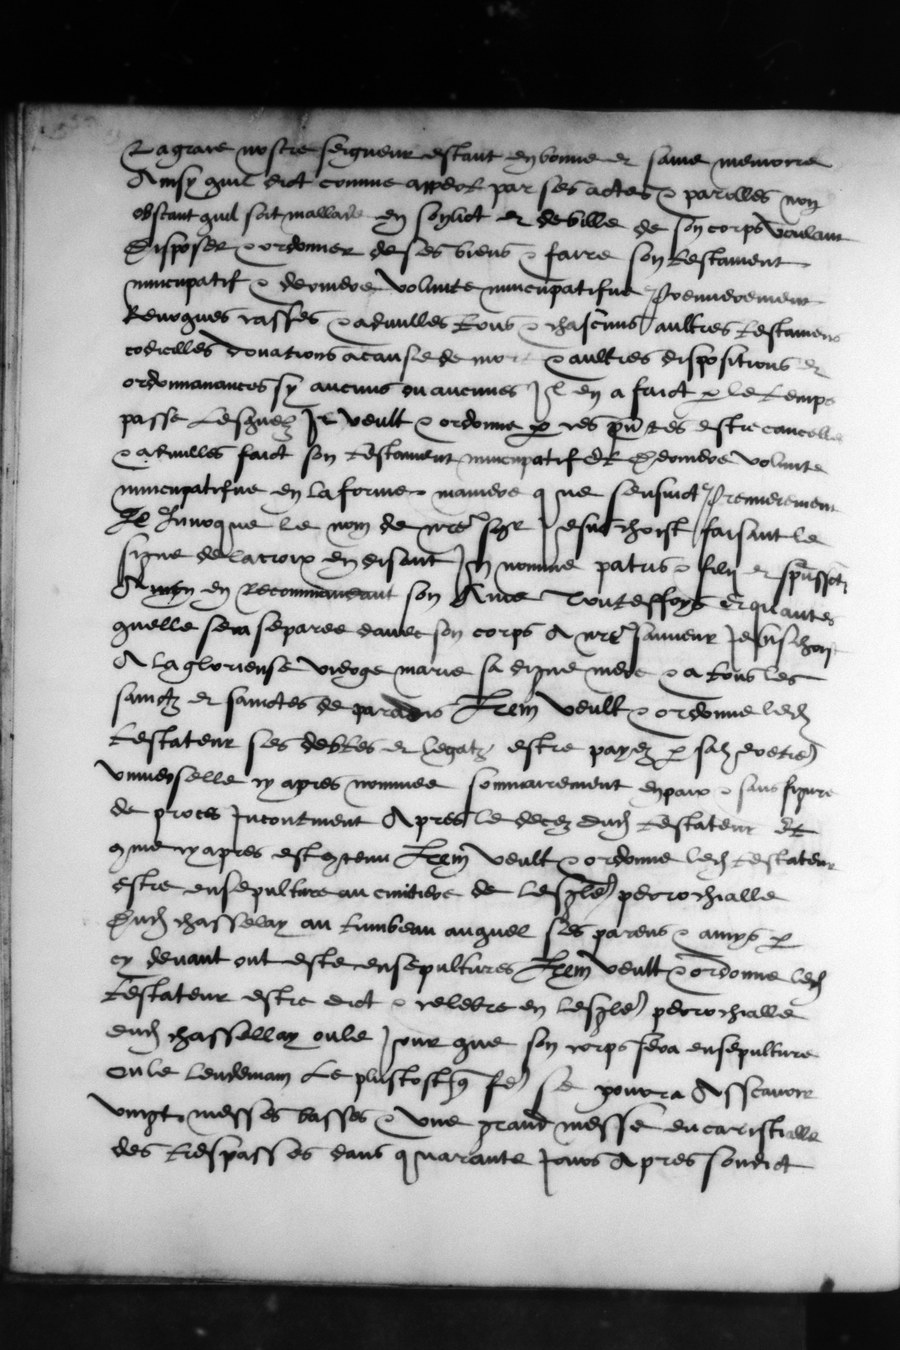 La grace nostre seigneur estant en bonne et saine memoire
Ainsy quil dict comme appert par ses actes & parolles non
obstant quil soit mallade en son lict et debille de son corps voulant
disposer & ordonner de ses biens & faire son testament
nuncupatif & derniere volunte nuncupatifue Premierement
Revoques casses & adnulles tous & chascuns aultres testamens
codicilles donations a cause de mort & aultres dispositions et
ordonnanances sy aucuns ou aucunes Il en a faict p le temps
passe Lesquelz Il veult & ordonne p ces pntes estre cancelle
& adnulles faict son testament nuncupatif et derniere volunte
nuncupatifue en la forme & maniere que sensuict Premierement
Il Invoque le nom de nre sgr Jesus christ faisant le
signe de la croix en disant In nomine patris & filii et spus scti
Amen en Recommandant son Ame touteffoys et quantes
quelle sera separee davec son corps A nre saulueur Jesuschrist
A la glorieuse vierge marie sa digne mere & a tous les
sainctz et sainctes de paradis Item veult & ordonne led
testateur ses debtes et legatz estre payez p sad heretiere
vniuerselle cy apres nommee sommairement en paix & sans figure
de proces Incontinent Apres le decez dud testateur Et
comme cy apres est contenu Item veult & ordonne led testateur
estre ensepulture au cimitiere de lesgle perrochialle
Dud chasselay au tumbeau auquel ses parens & amys p
cy devant ont este ensepultures Item veult & ordonne led
testateur estre dict & celebre en lesgle perrochialle
dud chassellay ou le Jour que son corps sera ensepulture
ou le lendemain Le plustost que fe se pourra Asscavoir
vingt messes basses & vne grand messe eucaristialle
des trespasses dans quarante Jours Apres sondict